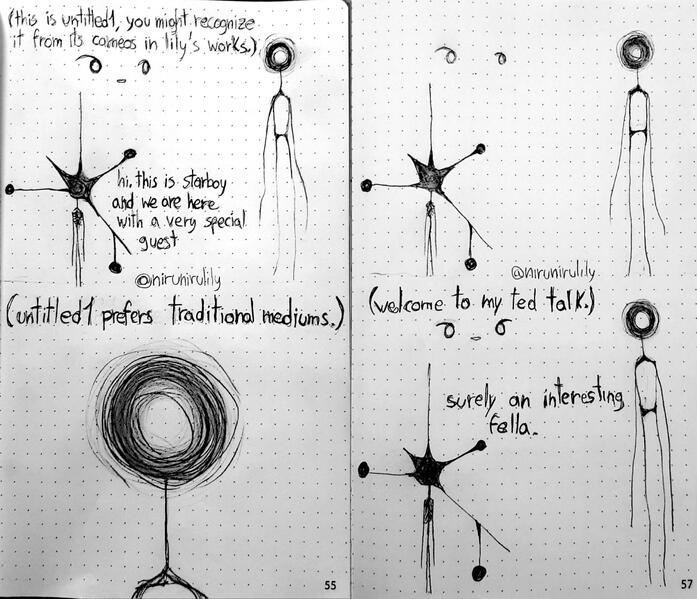 (this is untitled1, you might recognize
it from its cameos in lily's works.)
hi, this is starboy
and we are here
with a very special
guest
@nirunirulily
(untitled1 prefers traditional mediums.)
55
@nirunirulily
(welcome to my ted talk.)
surely an interesting
fella.
57